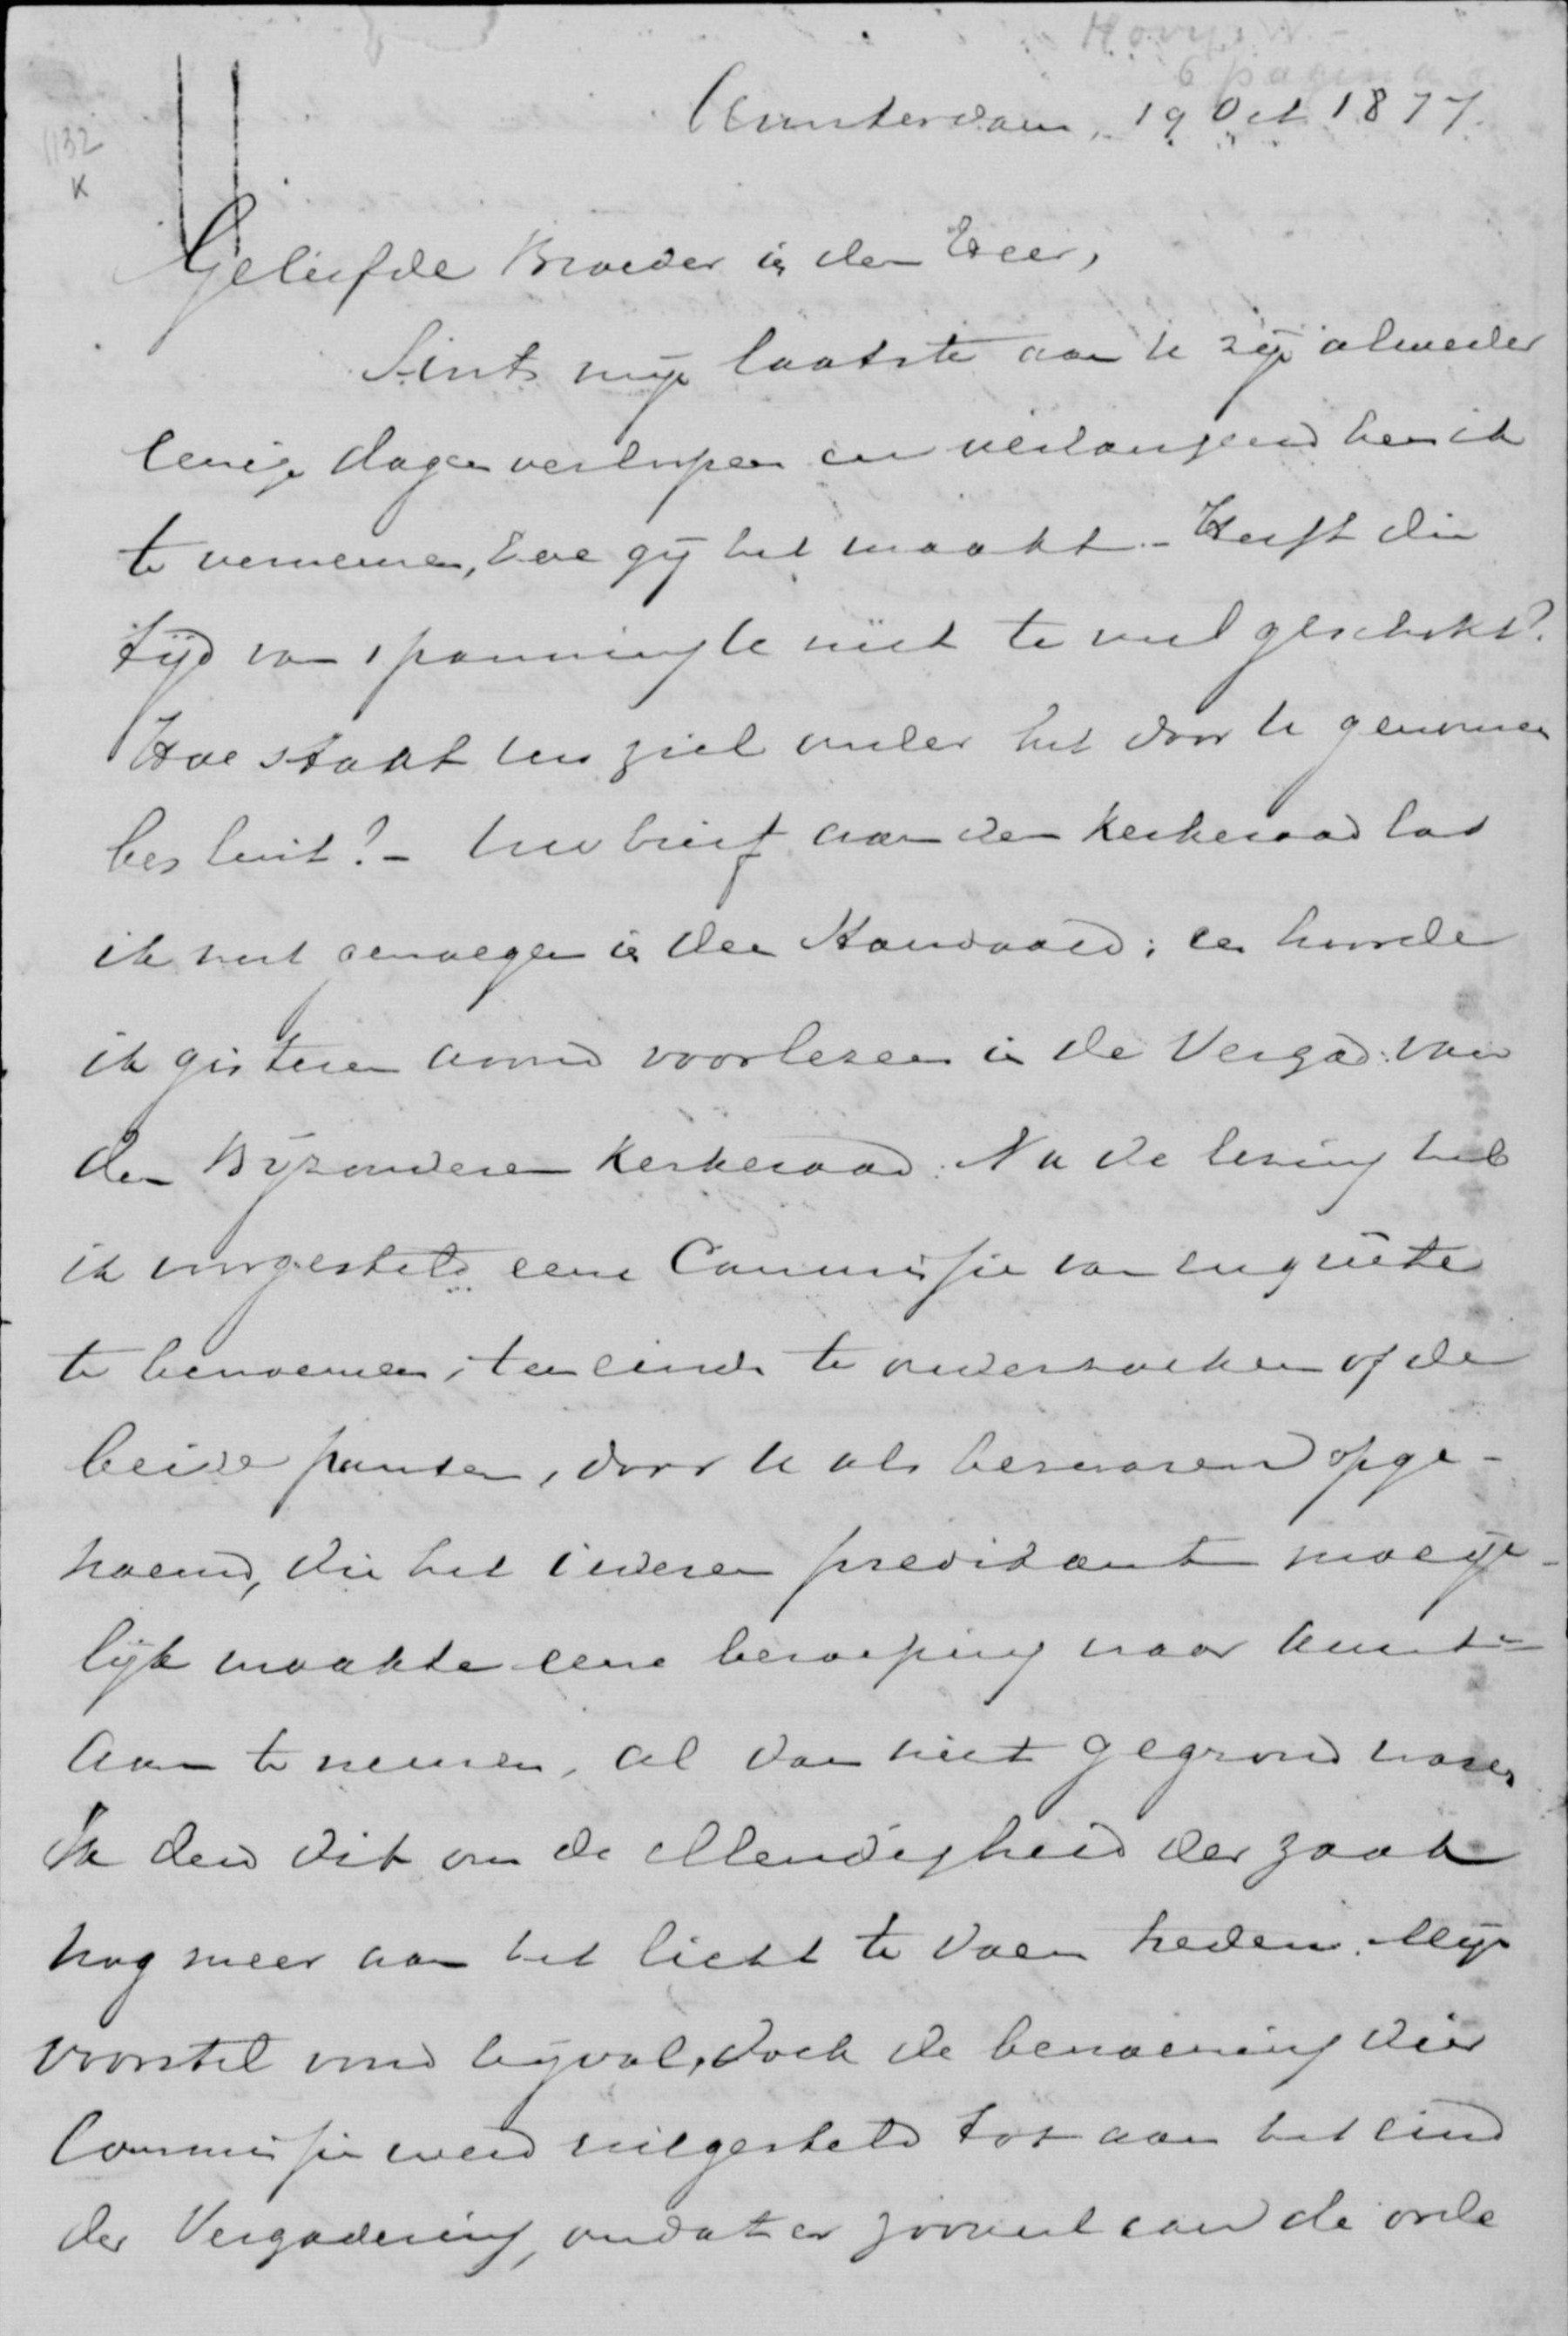 Hovy
6 pagina's
1132
K
Amsterdam, 19 Oct 1877.
Geliefde Broeder in den Heer,
Sints mijn laatste aan U zijn alweder
eenige dagen verloopen en verlangend ben ik
te vernemen, hoe gij het maakt. - Heeft die
tijd van spanning U niet te veel geschokt?
Hoe staat uw ziel onder het door U genomen
besluit? - Uw brief aan den Kerkeraad las
ik met genoegen in den Standaard; en hoorde
ik gisteren avond voorlezen in de Vergad: van
den Bijzonderen Kerkeraad. Na de lezing heb
ik voorgesteld eene Commissie van enquête
te benoemen, ten einde te onderzoeken of de
beide punten, door U als bezwaren opge-
noemd, die het iederen predikant moeije-
lijk maakte eene beroeping naar Amst-
aan te nemen, al dan niet gegrond waren
Ik deed dit om de ellendigheid der zaak
nog meer aan het licht te doen treden. Mijn
voorstel vond bijval, doch de benoeming dier
Commissie werd uitgesteld tot aan het eind
der Vergadering, omdat er zooveel aan de orde